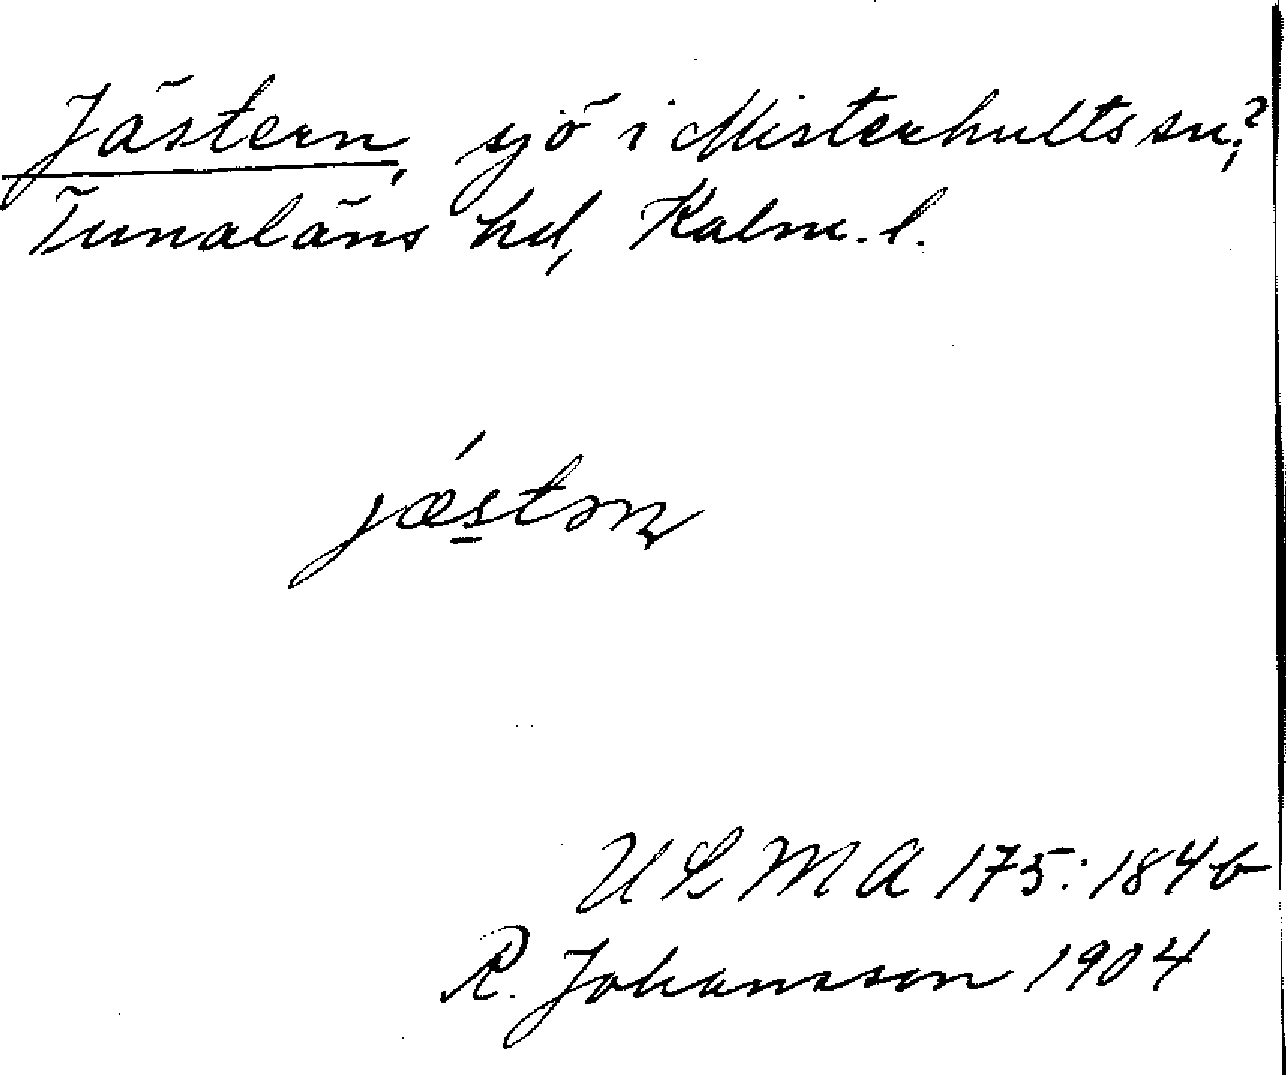 Jästern, sjö i Misterhults sn?,
Tunaläns hd, Kalm. l.
jæstən
ULMA 175:184 b
R. Johansson 1904